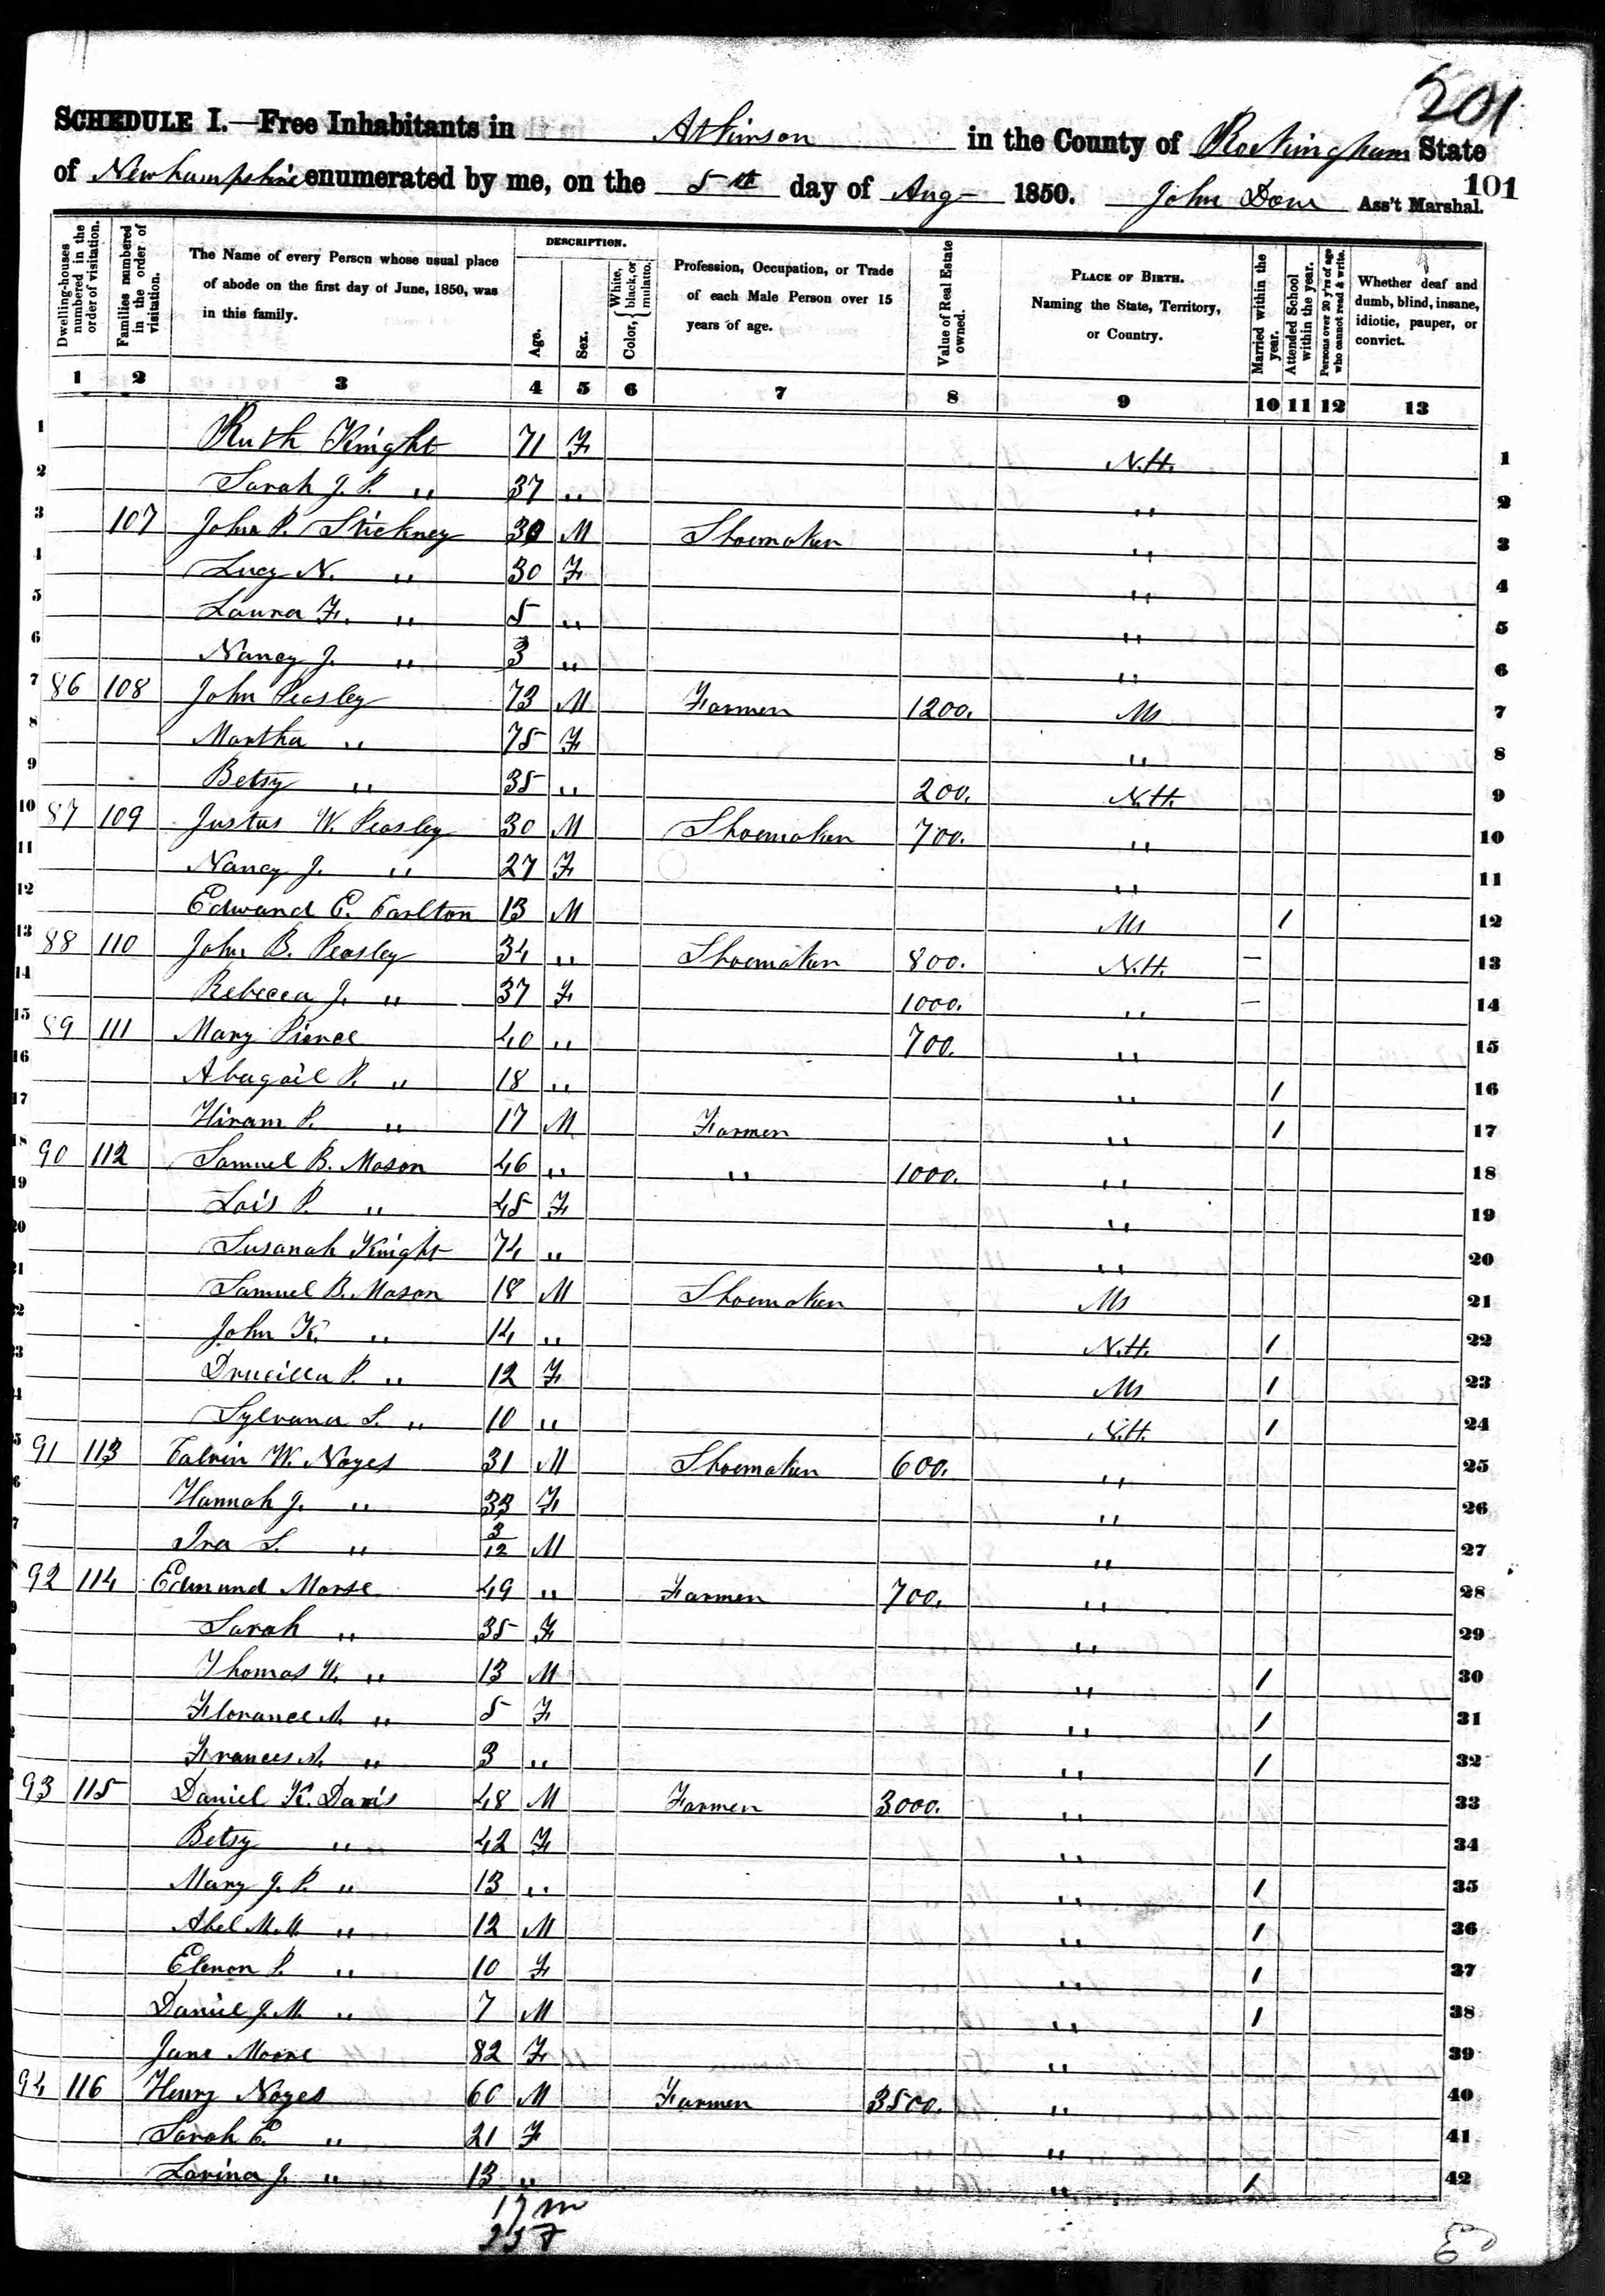 201
SCHEDULE I.—Free Inhabitants in Atkinson in the County of Rockingham State
of Newhampshire enumerated by me, on the 5th day of Aug 1850. John Dow Ass't Marshal. 101
Dwelling-houses numbered in the order of visitation.
Families numbered in the order of visitation.
The Name of every Person whose usual place of abode on the first day of June, 1850, was in this family.
DESCRIPTION.
Age.
Sex.
Color, { White, black, or mulatto.
Profession, Occupation, or Trade of each Male Person over 15 years of age.
Value of Real Estate owned.
PLACE OF BIRTH.
Naming the State, Territory, or Country.
Married within the year.
Attended School within the year.
Persons over 20 y'rs of age who cannot read & write.
Whether deaf and dumb, blind, insane, idiotic, pauper, or convict.
1 2 3 4 5 6 7 8 9 10 11 12 13
1 Ruth Knight 71 F N.H. 1
2 Sarah J. P. " 37 " " 2
3 107 John P. Stickney 30 M Shoemaker " 3
4 Lucy N. " 30 F " 4
5 Laura F. " 5 " " 5
6 Nancy J. " 3 " " 6
7 86 108 John Peasley 73 M Farmer 1200. Ms 7
8 Martha " 75 F " 8
9 Betsy " 35 " 200. N.H. 9
10 87 109 Justus W. Peasley 30 M Shoemaker 700. " 10
11 Nancy J. " 27 F " 11
12 Edward E. Carlton 13 M Ms 1 12
13 88 110 John B. Peasley 34 " Shoemaker 800. N.H. — 13
14 Rebecca J. " 37 F 1000. " — 14
15 89 111 Mary Pierce 40 " 700. " 15
16 Abagail P. " 18 " " 1 16
17 Hiram P. " 17 M Farmer " 1 17
18 90 112 Samuel B. Mason 46 " " 1000. " 18
19 Lois P. " 45 F " 19
20 Susanah Knight 74 " " 20
21 Samuel B. Mason 18 M Shoemaker Ms 21
22 John K. " 14 " N.H. 1 22
23 Drucilla P. " 12 F Ms 1 23
24 Sylvana S. " 10 " N.H. 1 24
25 91 113 Calvin W. Noyes 31 M Shoemaker 600. " 25
26 Hannah J. " 33 F " 26
27 Ira S. " 3/12 M " 27
28 92 114 Edmund Morse 49 " Farmer 700. " 28
29 Sarah " 35 F " 29
30 Thomas W. " 13 M " 1 30
31 Florance A. " 5 F " 1 31
32 Frances A. " 3 " " 1 32
33 93 115 Daniel K. Davis 48 M Farmer 3000. " 33
34 Betsy " 42 F " 34
35 Mary J. P. " 13 " " 1 35
36 Abel M. " 12 M " 1 36
37 Elenor P. " 10 F " 1 37
38 Daniel J. M. " 7 M " 1 38
39 Jane Moore 82 F " 39
40 94 116 Henry Noyes 60 M Farmer 3500. " 40
41 Sarah E. " 21 F " 41
42 Lavina J. " 13 " " 1 42
17 m
25 F